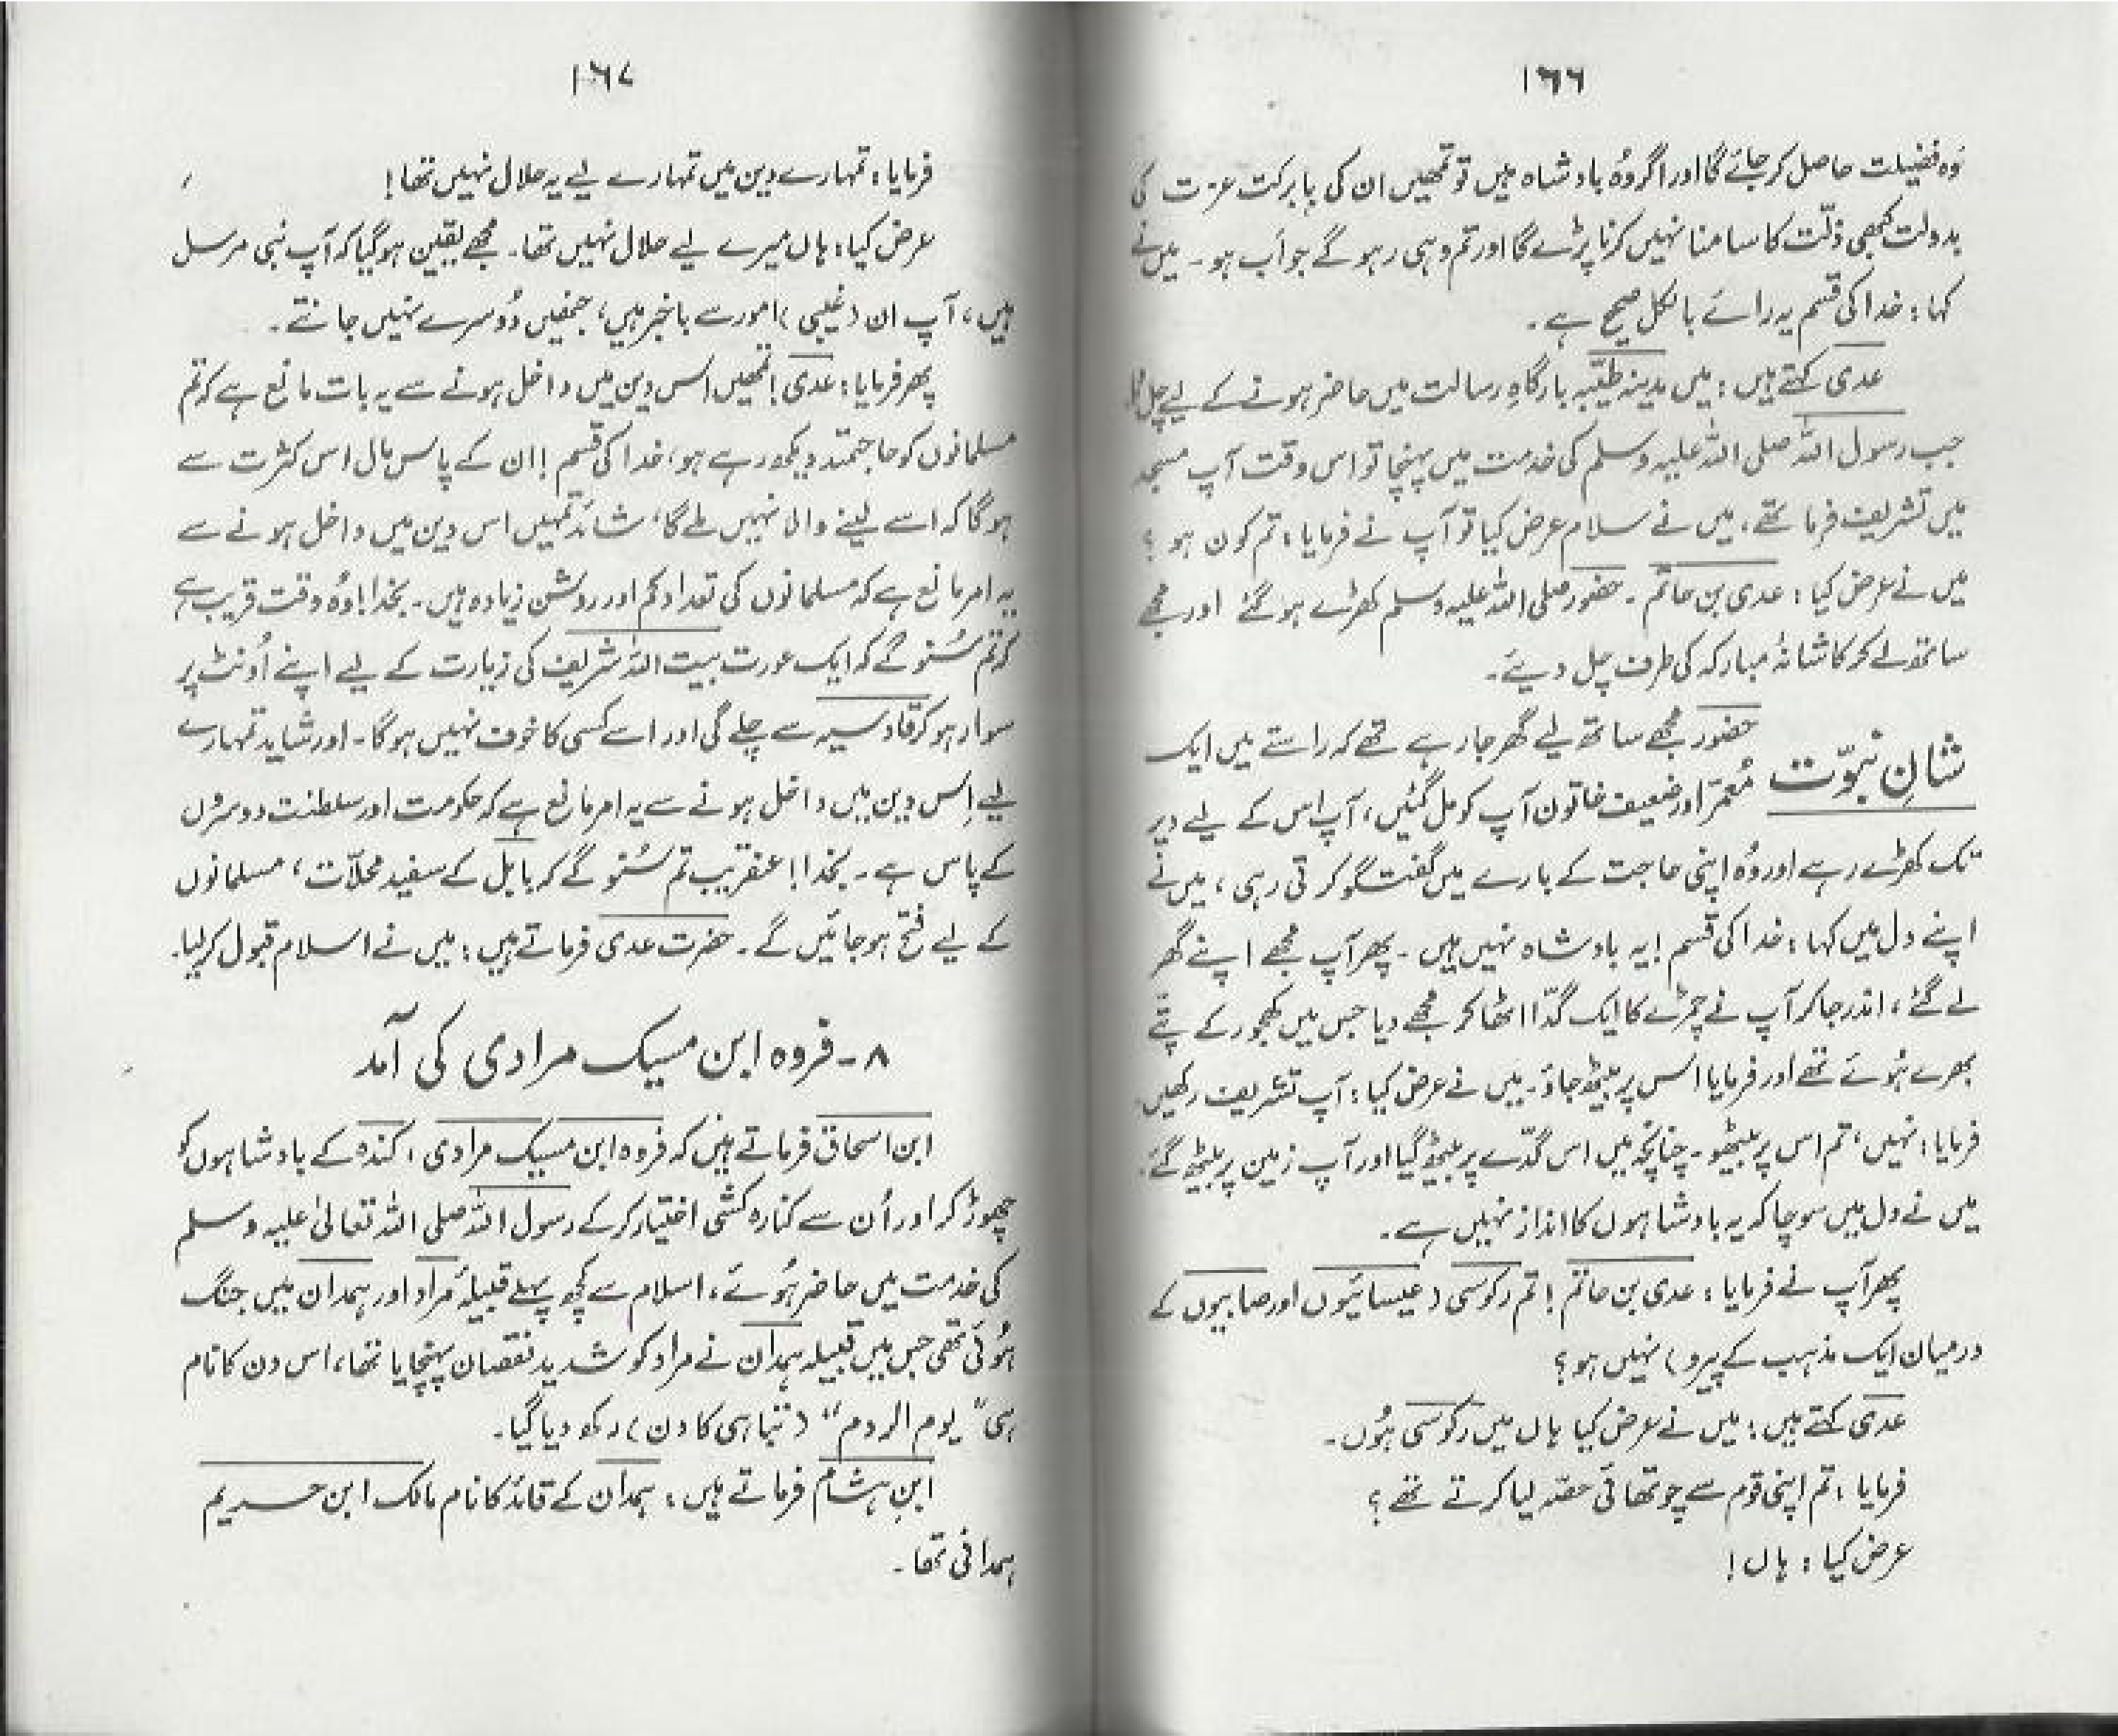 ۱۶۶
وُہ فضیلت حاصل کر جائے گا اور اگر وُہ بادشاہ ہیں تو تمھیں ان کی بابرکت عزت کی
بدولت کبھی ذلّت کا سامنا نہیں کرنا پڑے گا اور تم وہی رہو گے جو اَب ہو۔ میں نے
کہا : خدا کی قسم یہ رائے بالکل صحیح ہے۔
عدی کہتے ہیں : میں مدینہ طیّبہ بارگاہِ رسالت میں حاضر ہونے کے لیے چل
جب رسول اللہ صلی اللہ علیہ وسلم کی خدمت میں پہنچا تو اس وقت آپ مسجد
میں تشریف فرما تھے، میں نے سلام عرض کیا تو آپ نے فرمایا : تم کون ہو ؟
میں نے عرض کیا : عدی بن حاتم ۔ حضور صلی اللہ علیہ وسلم کھڑے ہو گئے اور مجھے
ساتھ لے کر کاشانۂ مبارکہ کی طرف چل دیے۔
شانِ نبوّت
حضور مجھے ساتھ لیے گھر جا رہے تھے کہ راستے میں ایک
مُعمّر اور ضعیف خاتون آپ کو مل گئیں، آپ اس کے لیے دیر
تک کھڑے رہے اور وُہ اپنی حاجت کے بارے میں گفتگو کرتی رہی ، میں نے
اپنے دل میں کہا : خدا کی قسم ! یہ بادشاہ نہیں ہیں ۔ پھر آپ مجھے اپنے گھر
لے گئے ، اندر جا کر آپ نے چمڑے کا ایک گدّا اٹھا کر مجھے دیا جس میں کھجور کے پتّے
بھرے ہُوئے تھے اور فرمایا اس پر بیٹھ جاؤ۔ میں نے عرض کیا : آپ تشریف رکھیں
فرمایا : نہیں ، تم اس پر بیٹھو ۔ چنانچہ میں اس گدّے پر بیٹھ گیا اور آپ زمین پر بیٹھ گئے
میں نے دل میں سوچا کہ یہ بادشاہوں کا انداز نہیں ہے۔
پھر آپ نے فرمایا : عدی بن حاتم ! تم رکوسی (عیسائیوں اور صابیوں کے
درمیان ایک مذہب کے پیرو) نہیں ہو ؟
عدی کہتے ہیں : میں نے عرض کیا ہاں میں رکوسی ہُوں۔
فرمایا : تم اپنی قوم سے چوتھائی حصّہ لیا کرتے تھے ؟
عرض کیا : ہاں !
۱۶۷
فرمایا : تمہارے دین میں تمہارے لیے یہ حلال نہیں تھا !
عرض کیا : ہاں میرے لیے حلال نہیں تھا ۔ مجھے یقین ہو گیا کہ آپ نبی مرسل
ہیں ، آپ ان (غیبی) امور سے باخبر ہیں ، جنھیں دُوسرے نہیں جانتے ۔
پھر فرمایا : عدی ! تمھیں اس دین میں داخل ہونے سے یہ بات مانع ہے کہ تم
مسلمانوں کو حاجتمند دیکھ رہے ہو ، خدا کی قسم ! ان کے پاس مال اس کثرت سے
ہو گا کہ اسے لینے والا نہیں ملے گا ، شائد تمہیں اس دین میں داخل ہونے سے
یہ امر مانع ہے کہ مسلمانوں کی تعداد کم اور دشمن زیادہ ہیں ۔ بخدا ! وُہ وقت قریب ہے
کہ تم سُنو گے کہ ایک عورت بیت اللہ شریف کی زیارت کے لیے اپنے اُونٹ پر
سوار ہو کر قادسیہ سے چلے گی اور اسے کسی کا خوف نہیں ہو گا ۔ اور شاید تمہارے
لیے اِس دین میں داخل ہونے سے یہ امر مانع ہے کہ حکومت اور سلطنت دوسروں
کے پاس ہے ۔ بخدا ! عنقریب تم سُنو گے کہ بابل کے سفید محلّات ، مسلمانوں
کے لیے فتح ہو جائیں گے ۔ حضرت عدی فرماتے ہیں : میں نے اسلام قبول کر لیا۔
۸ ۔ فروہ ابن مسیک مرادی کی آمد
ابن اسحاق فرماتے ہیں کہ فروہ ابن مسیک مرادی ، کندہ کے بادشاہوں کو
چھوڑ کر اور اُن سے کنارہ کشی اختیار کر کے رسول اللہ صلی اللہ تعالیٰ علیہ وسلم
کی خدمت میں حاضر ہُوئے ، اسلام سے کچھ پہلے قبیلۂ مُراد اور ہمدان میں جنگ
ہُوئی تھی جس میں قبیلہ ہمدان نے مراد کو شدید نقصان پہنچایا تھا ، اس دن کا نام
ہی ”یوم الردم“ (تباہی کا دن) رکھ دیا گیا۔
ابنِ ہشام فرماتے ہیں : ہمدان کے قائد کا نام مالک ابن حریم
ہمدانی تھا ۔